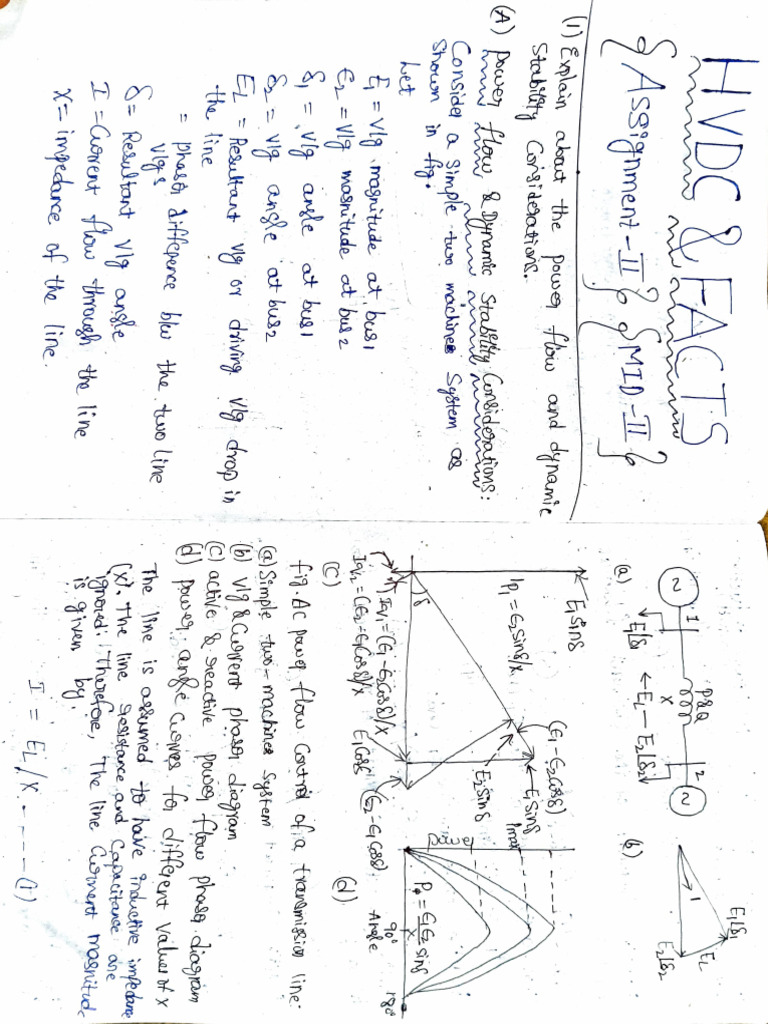 HVDC & FACTS
{Assignment-II} {MID-II}
(1) Explain about the power flow and dynamic
Stability Considerations.
(A) Power flow & Dynamic Stability Considerations:
Consider a simple two machine System as
shown in fig.
Let
E1 = Vlg magnitude at bus1
E2 = Vlg magnitude at bus2
δ1 = Vlg angle at bus1
δ2 = Vlg angle at bus2
EL = Resultant Vlg or driving Vlg drop in
the line
= phasor difference b/w the two line
Vlgs
δ = Resultant Vlg angle
I = Current flow through the line
X = impedance of the line.
1 P&Q 2
I
X
E1∠δ1 ← EL → E2∠δ2
(a)
(b)
E1∠δ1
EL
I
E2∠δ2
E1sinδ
Ip1 = E2sinδ/x
(E1-E2cosδ)
E1sinδ
E2sinδ
δ
Iq1 = (E1-E2cosδ)/x
Iq2 = (E2-E1cosδ)/x
E1cosδ
(E2-E1cosδ)
(c)
Power
Pmax
P = E1E2/X sinδ
90° 180°
Angle
(d)
fig. AC power flow control of a transmission line:
(a) Simple two-machine system
(b) Vlg & Current phasor diagram
(c) active & reactive power flow phasor diagram
(d) power angle curves for different values of x
The line is assumed to have inductive impedance
(x). The line resistance and capacitance are
ignored. Therefore, The line current magnitude
is given by.
I = EL/X ---- (1)